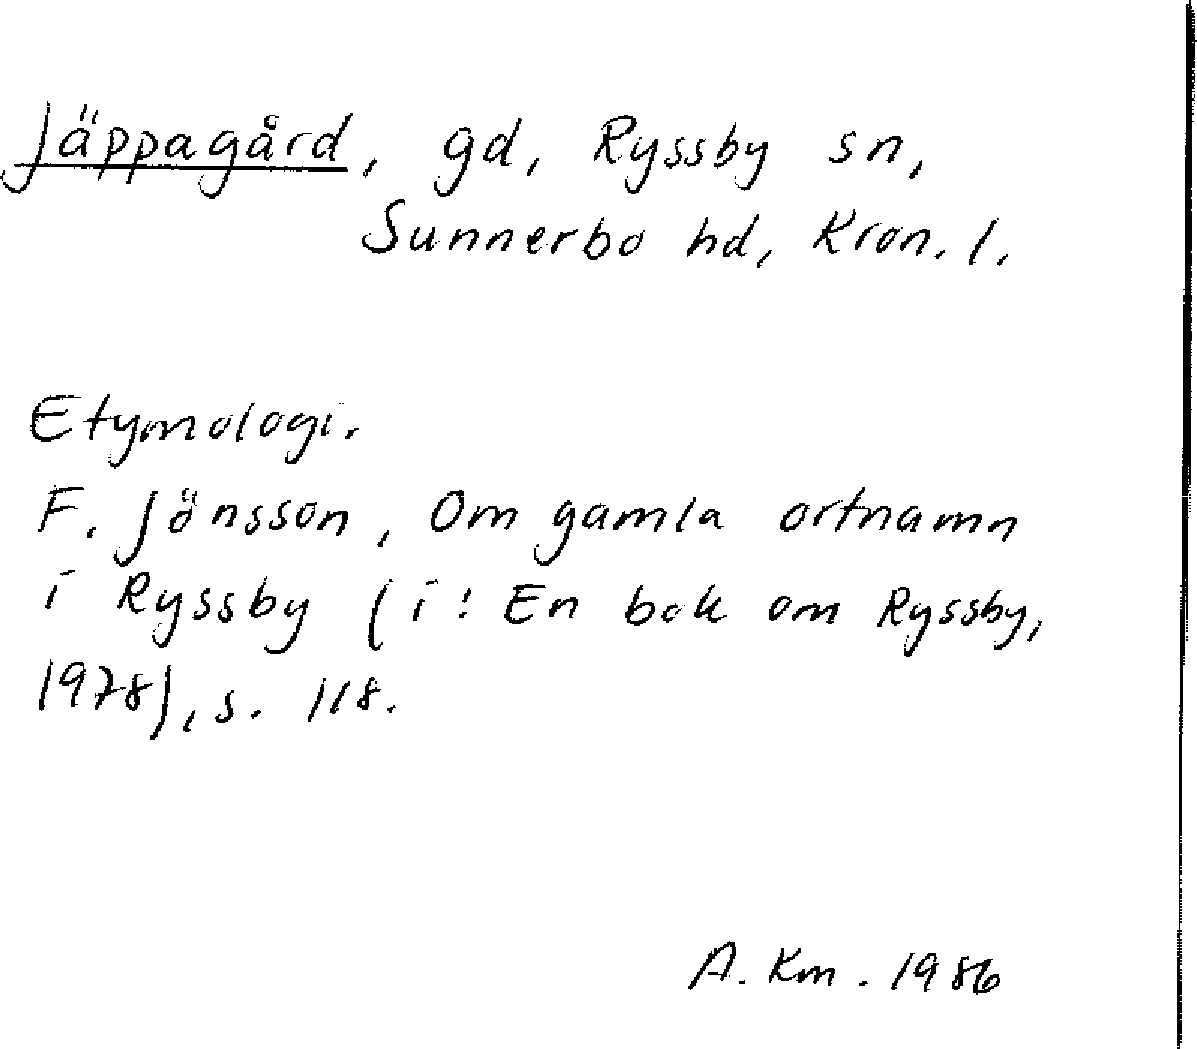 Jäppagård, gd, Ryssby sn,
Sunnerbo hd, Kron. l.
Etymologi.
F. Jönsson, Om gamla ortnamn
i Ryssby (i: En bok om Ryssby,
1978), s. 118.
A. Km. 1986